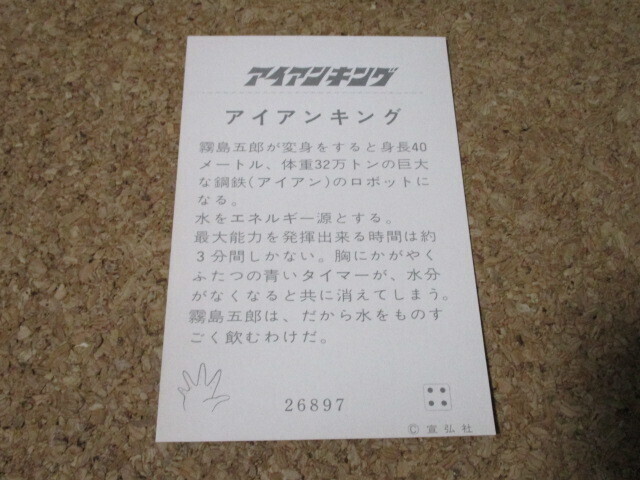 アイアンキング
アイアンキング
霧島五郎が変身をすると身長40
メートル、体重32万トンの巨大
な鋼鉄(アイアン)のロボットに
なる。
水をエネルギー源とする。
最大能力を発揮出来る時間は約
3分間しかない。胸にかがやく
ふたつの青いタイマーが、水分
がなくなると共に消えてしまう。
霧島五郎は、だから水をものす
ごく飲むわけだ。
26897
© 宣弘社